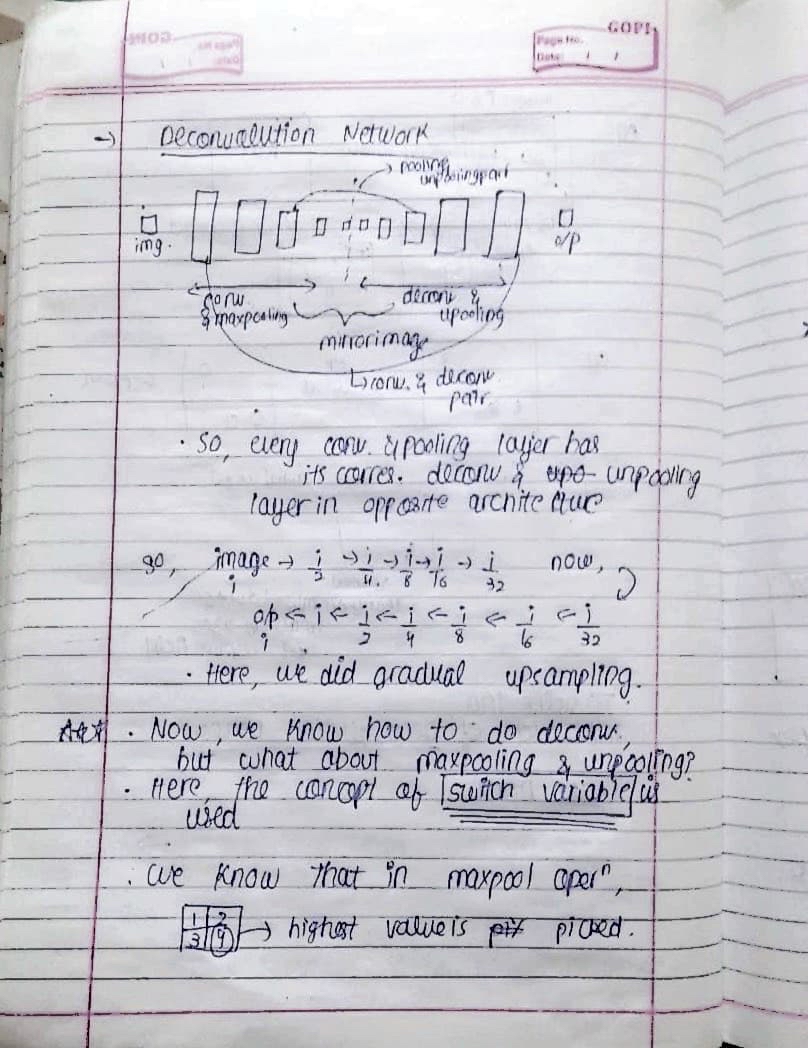 GOPI
Page No.
Date: / /
→ Deconvalution Network
→ pooling
unpoolingpart
img.
o/p
conv.
& maxpooling
deconv &
upooling
mirrorimage
↳ conv. & deconv
pair.
· So, every conv. & pooling layer has
its corres. deconv & upo unpooling
layer in opposite architecture
so, image → i/2 → i/4 → i/8 → i/16 → i/32 now,
i
o/p ← i ← i/2 ← i/4 ← i/8 ← i/16 ← i/32
i
· Here, we did gradual upsampling.
· Now, we know how to do deconv.,
but what about maxpooling & unpooling?
· Here, the concept of switch variable is
used
· We know that in maxpool operⁿ,
1 2
3 4 → highest value is pix picked.